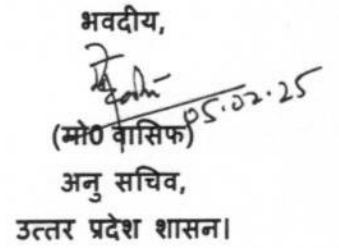 भवदीय,
05.02.25
(मो0 वासिफ)
अनु सचिव,
उत्तर प्रदेश शासन।